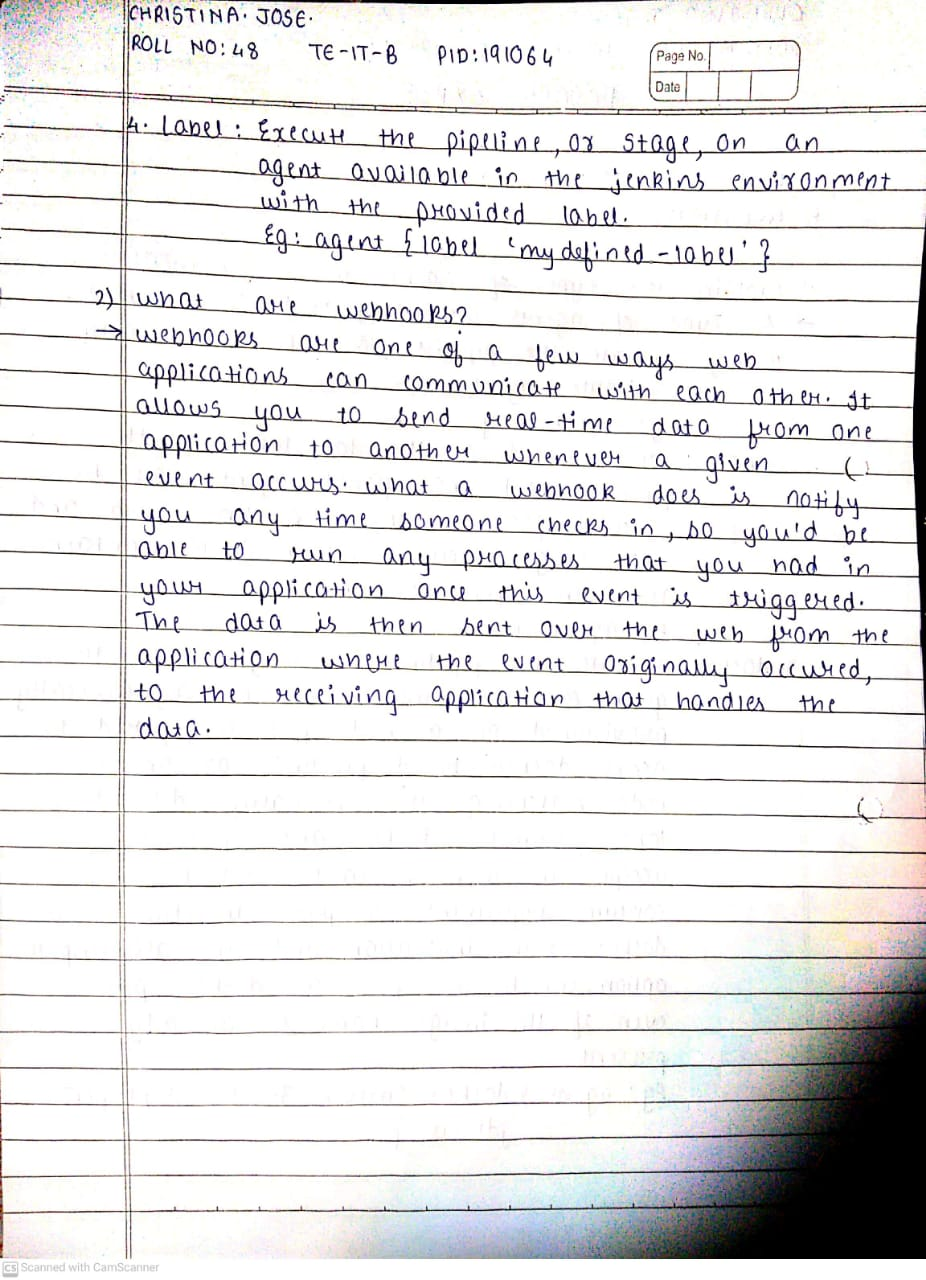 CHRISTINA. JOSE.
ROLL NO: 48 TE-IT-B PID: 191064
Page No.
Date
4. Label: Execute the pipeline, or stage, on an
agent available in the jenkins environment
with the provided label.
Eg: agent { label 'my defined-label' }
2) what are webhooks?
→ webhooks are one of a few ways web
applications can communicate with each other. It
allows you to send real-time data from one
application to another whenever a given
event occurs. what a webhook does is notify
you any time someone checks in, so you'd be
able to run any processes that you had in
your application once this event is triggered.
The data is then sent over the web from the
application where the event originally occured,
to the receiving application that handles the
data.
CS Scanned with CamScanner